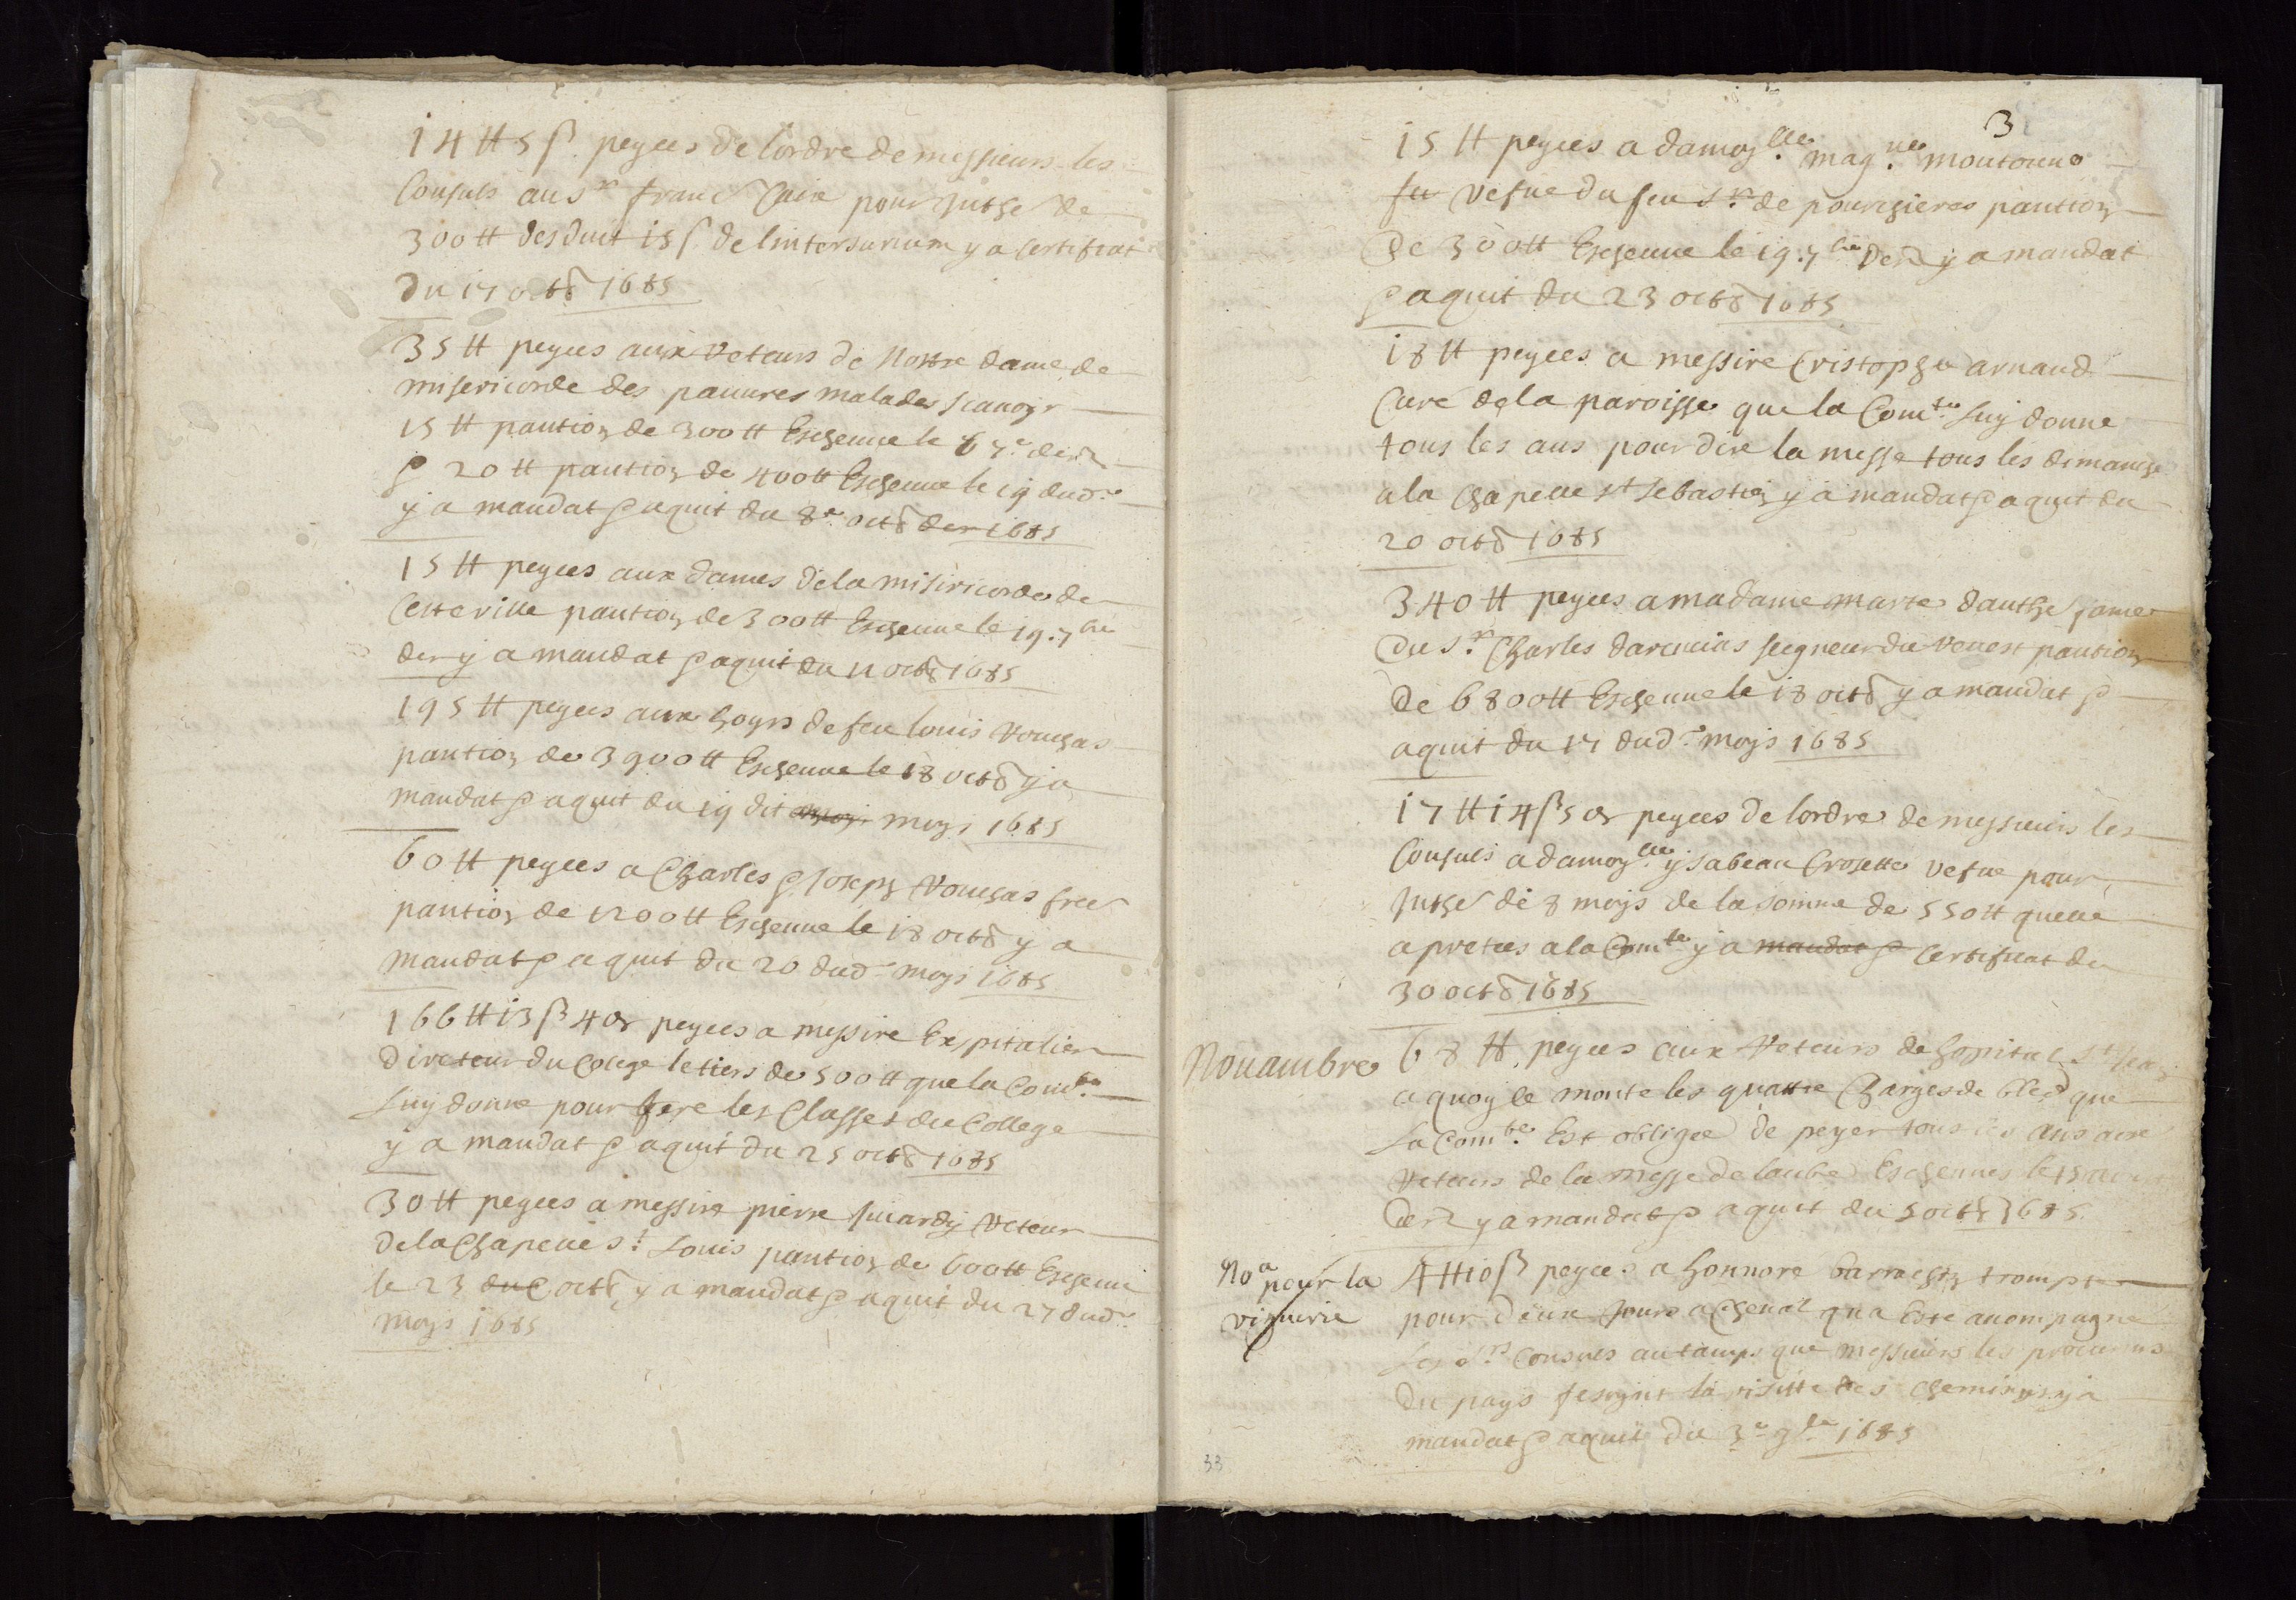 14 ₶ 5 ß peyees de lordre de messieurs les
Consuls au sr franc Caix pour juthe de
300 ₶ desduit 15 s. de linterusurium y a certificat
du 17 octb 1685
35 ₶ peyees aux Reteurs de Nottre dame de
misericorde des pauures malades scauoyr
15 ₶ pantion de 300 ₶ Escheue le 6 7e der
& 20 ₶ pantion de 400 ₶ Escheue le 19 dud.
y a mandat & aquit du 8e octb der 1685
15 ₶ peyees aux dames dela misericorde de
Cette ville pantion de 300 ₶ Escheue le 19. 7bre
der y a mandat & aquit du 11 octb 1685
195 ₶ peyees aux hoyrs de feu louis Rouchas
pantion de 3900 ₶ Escheue le 18 octb y a
mandat & aquit du 19 dit moys 1685
60 ₶ peyees a Charles & Joseph Rouchas fres
pantion de 1200 ₶ Escheue le 18 octb y a
mandat & aquit du 20 dud. moys 1685
166 ₶ 13 ß 4 ds peyees a messire Expitalier
Directeur du Colege le tiers de 500 ₶ que la Comte
Luy donne pour fere les Classes du College
y a mandat & aquit du 25 octb 1685
30 ₶ peyees a messire pierre Reteur
dela Chapelle St Louis pantion de 600 ₶ Escheue
le 23 octb y a mandat & aquit du 27 dud.
moys 1685
3
15 ₶ peyees a damoylle magne moutonne
vefue du feu sr de pourchieres pantion
De 300 ₶ Escheue le 19. 7bre der y a mandat
& aquit du 23 octb 1685
18 ₶ peyees a messire Cristophe arnaud
Curé dela paroisse que la Comte Luy donne
tous les ans pour dire la messe tous les dimanche
ala Chapelle st sebastien y a mandat & aquit du
20 octb 1685
340 ₶ peyees a madame marte danthe fame
Du sr Charles darcucias seigneur du Reuest pantion
De 6800 ₶ Escheue le 18 octb y a mandat &
aquit du 17 dud. moys 1685
17 ₶ 14 ß 5 ds peyees de lordre de messieurs les
Consuls a damoylle ysabeau Crosette vefue pour
juthe de 8 moys de la somme de 550 ₶ quelle
a pretees a la Comte y a mandat & certificat du
30 octb 1685
Nouambre
68 ₶ peyees aux Reteurs de hopital St Jean
a quoy ce monte les quattre Charges de bled que
La Comte Est obligee de peyer tous les ans aux
Reteurs de la messe de laube Escheues le 15
der y a mandat & aquit du 5 octb 1685
Noa pour la
viguerie
4 ₶ 10 ß peyees a honnoré trompte
pour deux Jours a Cheual qu a Este acompagné
Les srs Consuls au tamps que messieurs les procureurs
Du pays fesoynt la visitte des Chemins y a
mandat & aquit du 3e 9bre 1685
33